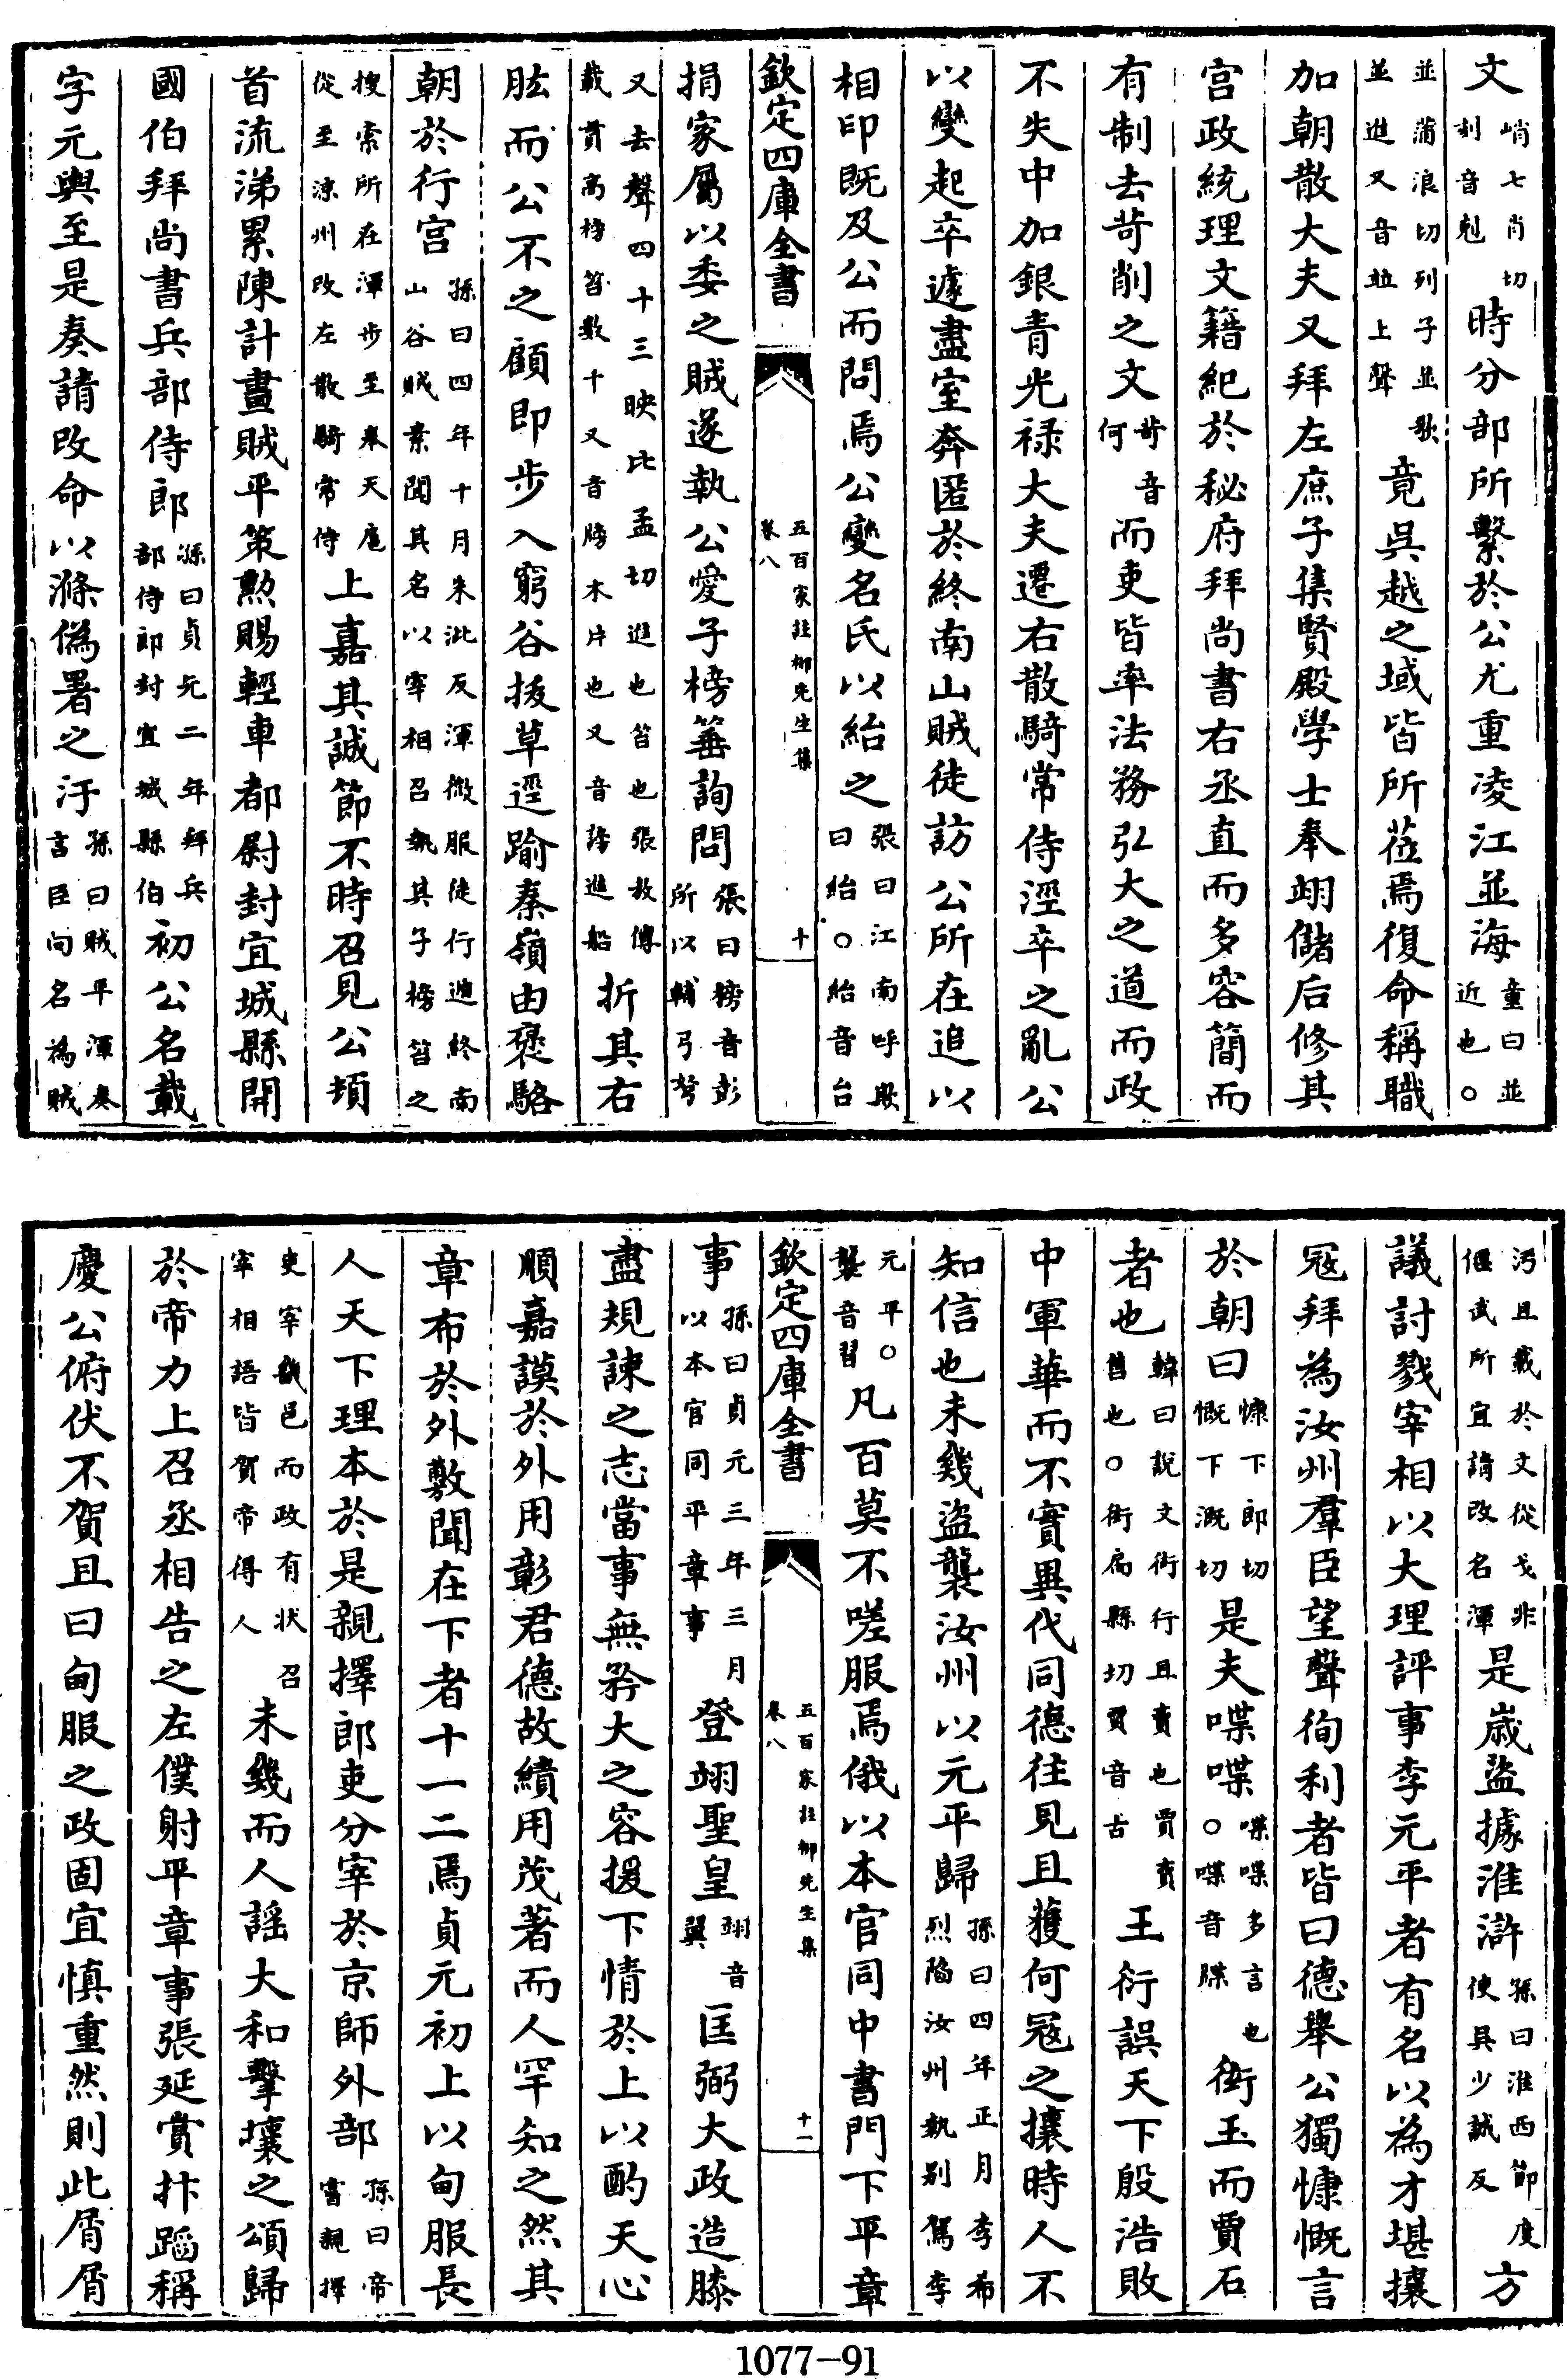 文峭七肖切刻音剋時分部所繫於公尤重凌江並海童曰並近也○
並蒲浪切列子並歌並進又音竝上聲竟吳越之域皆所莅焉復命稱職
加朝散大夫又拜左庶子集賢殿學士奉翊儲后修其
宫政統理文籍紀於秘府拜尚書右丞直而多容簡而
有制去苛削之文苛音何而吏皆率法務弘大之道而政
不失中加銀青光禄大夫遷右散騎常侍涇卒之亂公
以變起卒遽盡室奔匿於終南山賊徒訪公所在追以
相印既及公而問焉公變名氏以紿之張曰江南呼欺曰紿○紿音台
欽定四庫全書 五百家註柳先生集卷八 十
捐家屬以委之賊遂執公愛子榜箠詢問張曰榜音彭所以輔弓弩
又去聲四十三映比孟切進也笞也張敖傳載貫高榜笞數十又音牓木片也又音謗進船折其右
肱而公不之顧即步入窮谷披草逕踰秦嶺由褒駱
朝於行宫孫曰四年十月朱泚反渾微服徒行遁終南山谷賊素聞其名以宰相召執其子榜笞之
搜索所在渾步至奉天扈從至涼州改左散騎常侍上嘉其誠節不時召見公頓
首流涕累陳計畫賊平策勲賜輕車都尉封宜城縣開
國伯拜尚書兵部侍郎孫曰貞元二年拜兵部侍郎封宜城縣伯初公名載
字元輿至是奏請改命以滌偽署之汙孫曰賊平渾奏言臣向名為賊
汚且載於文從戈非偃武所宜請改名渾是歳盗據淮滸孫曰淮西節度使吳少誠反方
議討戮宰相以大理評事李元平者有名以為才堪攘
冦拜為汝州羣臣望聲徇利者皆曰德舉公獨慷慨言
於朝曰慷下郎切慨下溉切是夫喋喋喋喋多言也○喋音牒衒玉而賈石
者也韓曰說文衒行且賣也賈賣售也○衒扃縣切賈音古王衍誤天下殷浩敗
中軍華而不實異代同德往見且獲何冦之攘時人不
知信也未幾盜襲汝州以元平歸孫曰四年正月李希烈陷汝州執别駕李
元平○襲音習凡百莫不嗟服焉俄以本官同中書門下平章
欽定四庫全書 五百家註柳先生集卷八 十一
事孫曰貞元三年三月以本官同平章事登翊聖皇翊音翼匡弼大政造膝
盡規諫之志當事無矜大之容援下情於上以酌天心
順嘉謨於外用彰君德故績用茂著而人罕知之然其
章布於外敷聞在下者十一二焉貞元初上以甸服長
人天下理本於是親擇郎吏分宰於京師外部孫曰帝嘗親擇
吏宰畿邑而政有状召宰相語皆賀帝得人未幾而人謡大和擊壤之頌歸
於帝力上召丞相告之左僕射平章事張延賞抃蹈稱
慶公俯伏不賀且曰甸服之政固宜慎重然則此屑屑
1077-91